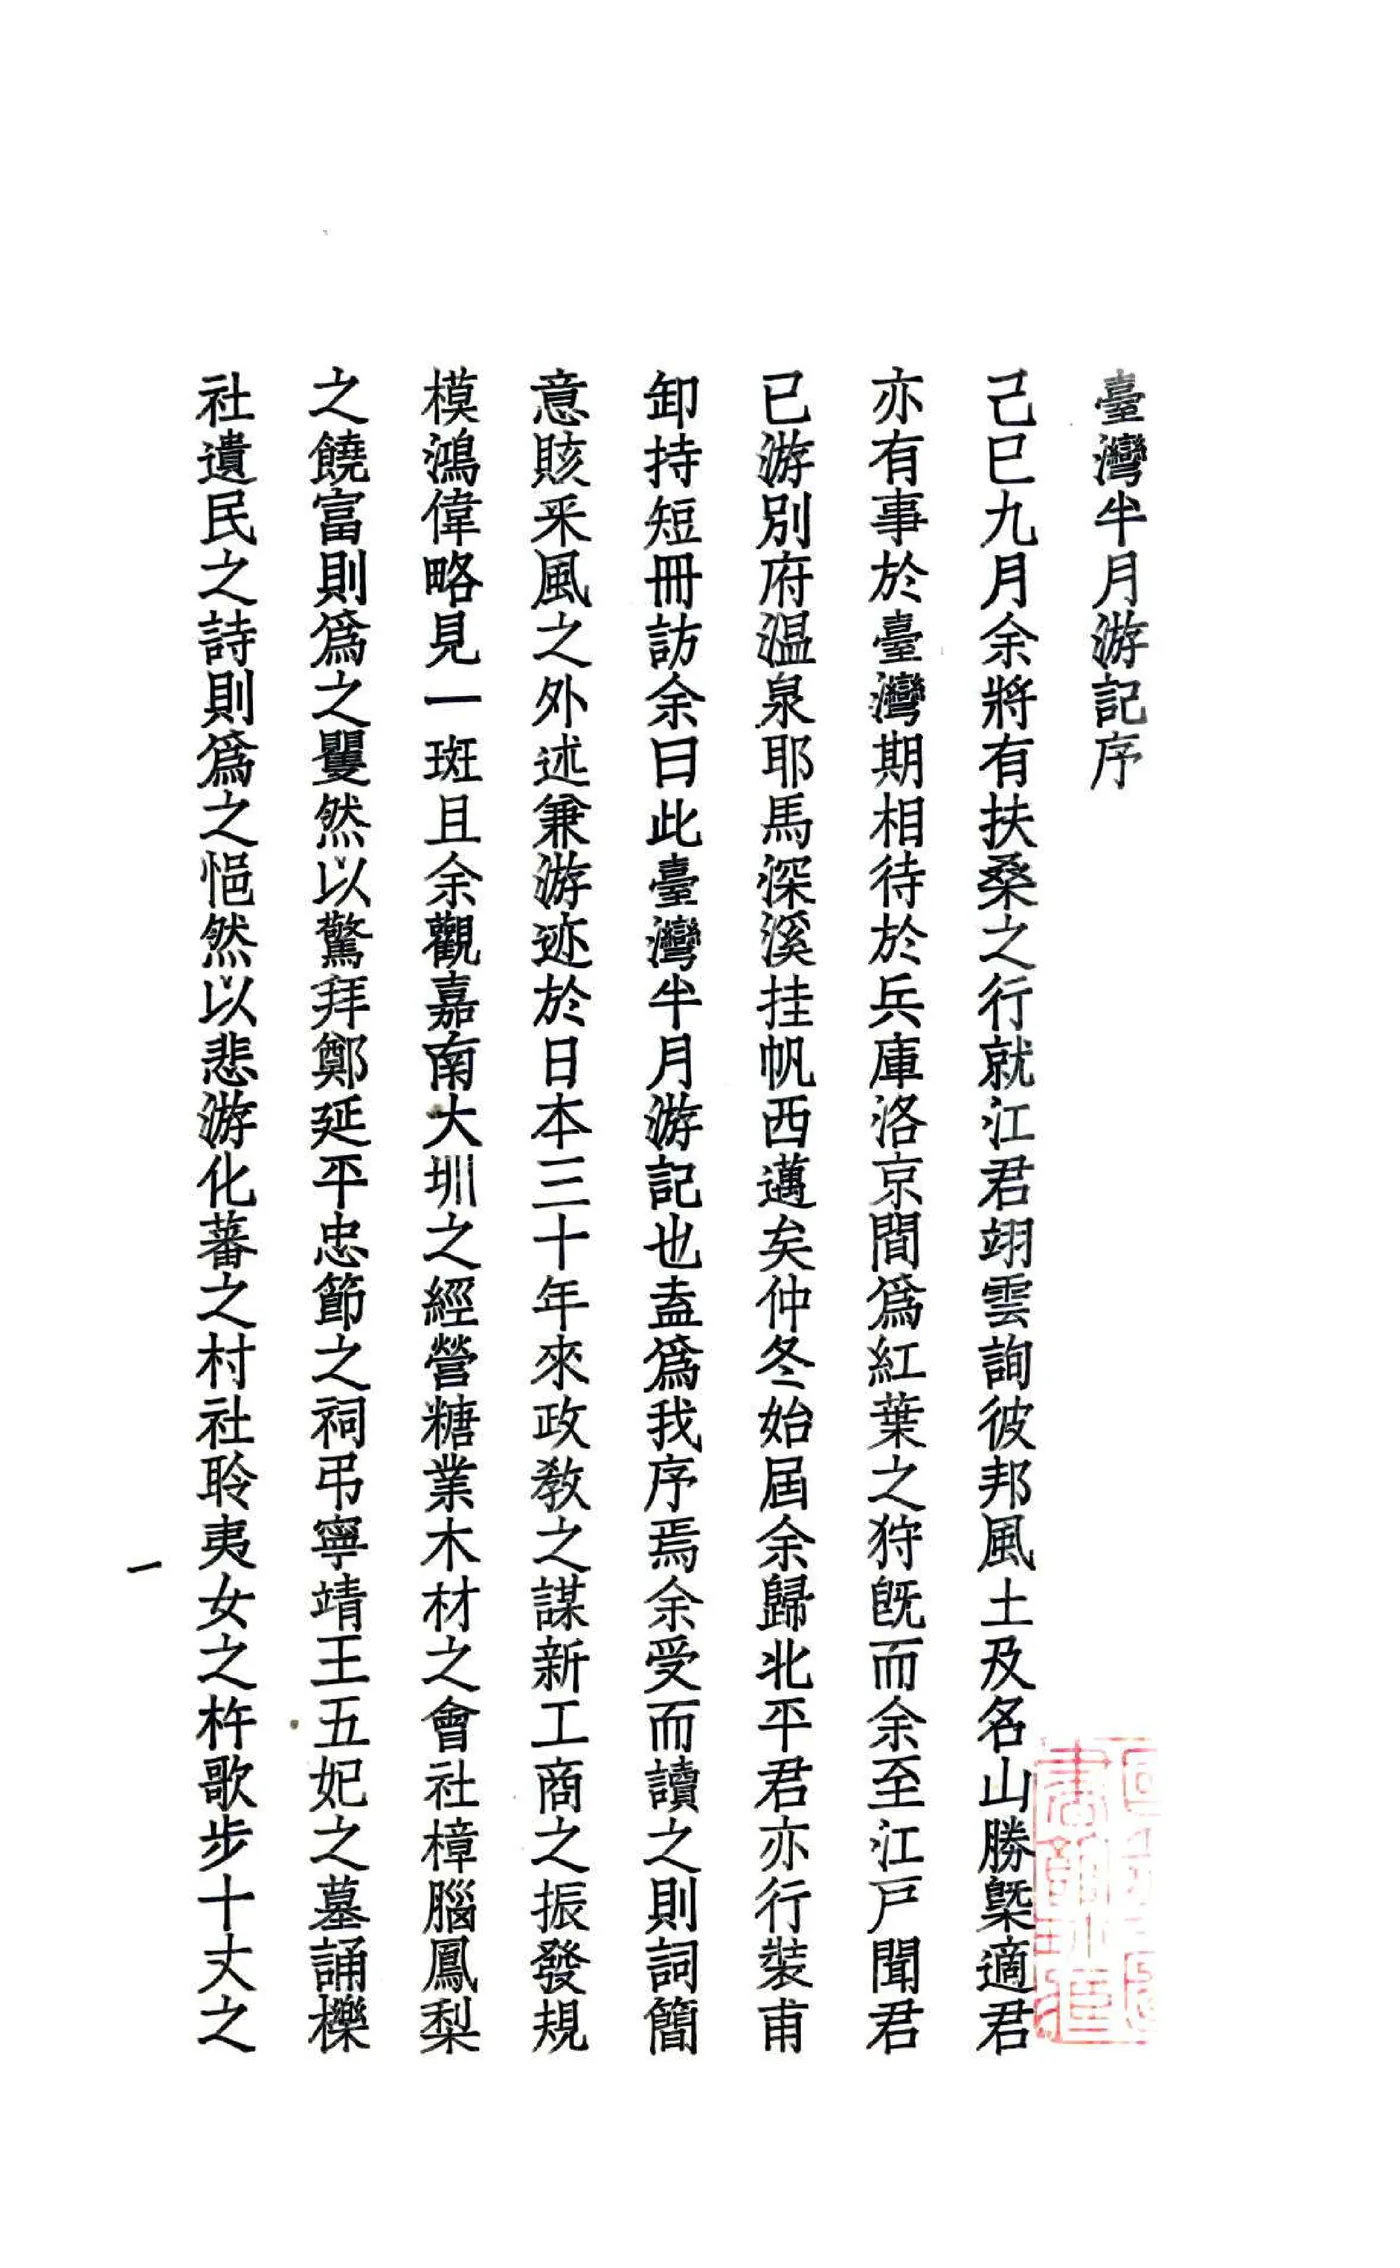 臺灣半月游記序
己巳九月余將有扶桑之行就江君翊雲詢彼邦風土及名山勝槩適君
亦有事於臺灣期相待於兵庫洛京間爲紅葉之狩旣而余至江戸聞君
已游別府温泉耶馬深溪挂帆西邁矣仲冬始屆余歸北平君亦行裝甫
卸持短冊訪余曰此臺灣半月游記也盍爲我序焉余受而讀之則詞簡
意賅采風之外述兼游迹於日本三十年來政教之謀新工商之振發規
模鴻偉略見一斑且余觀嘉南大圳之經營糖業木材之會社樟腦鳳梨
之饒富則爲之矍然以驚拜鄭延平忠節之祠弔寧靖王五妃之墓誦櫟
社遺民之詩則爲之悒然以悲游化蕃之村社聆夷女之杵歌步十丈之
一